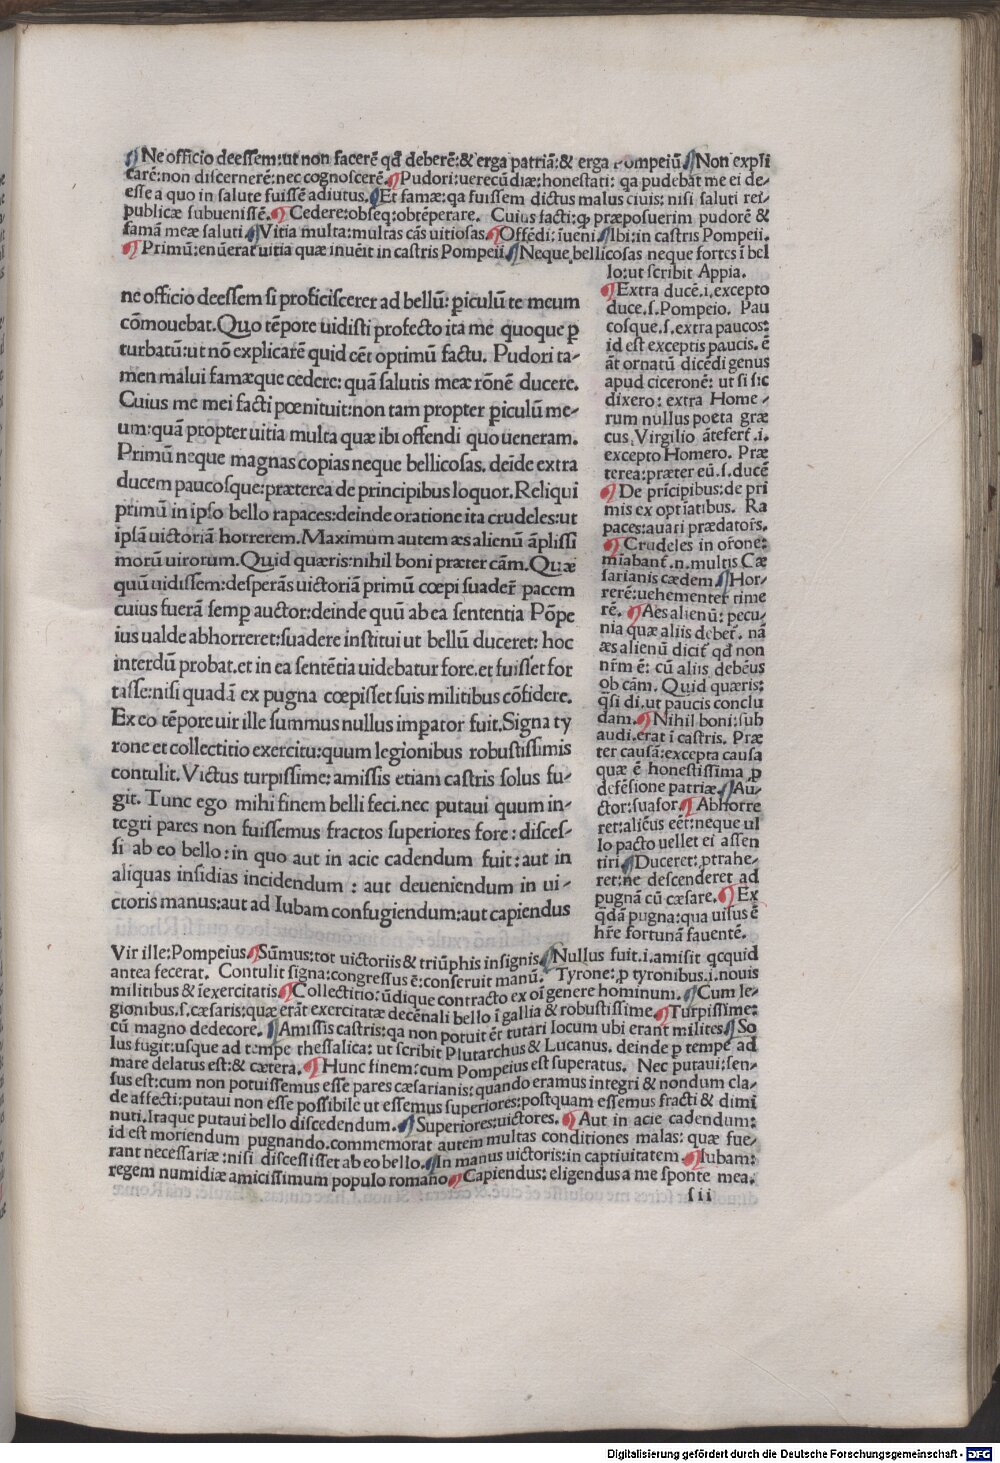 ¶Ne officio deessem:ut non facerē qđ deberē:& erga patriā:& erga Pompeiū¶Non expli
carē:non discernerē:nec cognoscerē¶Pudori:uerecūdiæ:honestati: qa pudebāt me ei de-
esse a quo in salute fuissē adiutus.¶Et famæ:qa fuissem dictus malus ciuis: nisi saluti rei-
publicæ subuenissē.¶Cedere:obseq:obtēperare. Cuius facti:q præposuerim pudorē &
famā meæ saluti¶Vitia multa:multas cās uitiosas.¶Offēdi:īueni¶Ibi:in castris Pompeii.
¶Primū:enūerat uitia quæ inuēit in castris Pompeii¶Neque bellicosas neque fortes ī bel
lo:ut scribit Appia.
¶Extra ducē.i.excepto
duce.s.Pompeio. Pau
cosque.s.extra paucos:
id est exceptis paucis. ē
āt ornatū dicēdi genus
apud ciceronē: ut si sic
dixero: extra Home-
rum nullus poeta græ
cus Virgilio āteferť.i.
excepto Homero. Præ
terea:præter eū.s.ducē
¶De prīcipibus:de pri
mis ex optīatibus. Ra
paces:auari prædatořs.
¶Crudeles in ořone:
mīabanť.n.multis Cæ
sarianis cædem¶Hor-
rerē:uehementer time
rē.¶Aes alienū: pecu-
nia quæ aliis debeť. nā
æs alienū diciť qđ non
nřm ē: cū aliis debēus
ob cām. Quid quæris:
qsi di.ut paucis conclu
dam.¶Nihil boni:sub
audi.erat ī castris. Præ
ter causā:excepta causa
quæ ē honestissima p
defēsione patriæ¶Au-
ctor:suasor¶Abhorre
ret:aliēus eēt:neque ul
lo pacto uellet ei assen
tiri¶Duceret:ptrahe-
ret:ne descenderet ad
pugnā cū cæsare.¶Ex
qdā pugna:qua uisus ē
hře fortunā fauentē.
ne officio deessem si proficiscerer ad bellū: piculū te meum
cōmouebat.Quo tēpore uidisti profecto ita me quoque p
turbatū:ut nō explicarē quid eēt optimū factu. Pudori ta-
men malui famæque cedere: quā salutis meæ rōnē ducere.
Cuius me mei facti pœnituit:non tam propter piculū me-
um:quā propter uitia multa quæ ibi offendi quo ueneram.
Primū neque magnas copias neque bellicosas. deīde extra
ducem paucosque:præterea de principibus loquor.Reliqui
primū in ipso bello rapaces:deinde oratione ita crudeles:ut
ipsā uictoriā horrerem.Maximum autem æs alienū āplissi
morū uirorum.Quid quæris:nihil boni præter cām.Quæ
quū uidissem:desperās uictoriā primū cœpi suadeř pacem
cuius fuerā semp auctor:deinde quū ab ea sententia Pōpe
ius ualde abhorreret:suadere institui ut bellū duceret: hoc
interdū probat.et in ea sentētia uidebatur fore.et fuisset for
tasse:nisi quadā ex pugna cœpisset suis militibus cōfidere.
Ex eo tēpore uir ille summus nullus impator fuit.Signa ty
rone et collectitio exercitu:quum legionibus robustissimis
contulit.Victus turpissime: amissis etiam castris solus fu-
git. Tunc ego mihi finem belli feci.nec putaui quum in-
tegri pares non fuissemus fractos superiores fore: disces-
si ab eo bello:in quo aut in acie cadendum fuit:aut in
aliquas insidias incidendum : aut deueniendum in ui-
ctoris manus:aut ad Iubam confugiendum:aut capiendus
Vir ille:Pompeius¶Sūmus:tot uictoriis & triūphis insignis¶Nullus fuit.i.amisit qcquid
antea fecerat. Contulit signa:congressus ē:conseruit manū. Tyrone:p tyronibus.i.nouis
militibus & īexercitatis¶Collectitio:ūdique contracto ex oī genere hominum.¶Cum le-
gionibus.s.cæsaris:quæ erāt exercitatæ decēnali bello ī gallia & robustissime¶Turpissime:
cū magno dedecore.¶Amissis castris:qa non potuit ēř tutari locum ubi erant milites¶So
lus fugit:usque ad tempe thessalica: ut scribit Plutarchus & Lucanus. deinde p tempe ad
mare delatus est:& cætera.¶Hunc finem:cum Pompeius est superatus. Nec putaui:sen-
sus est:cum non potuissemus esse pares cæsarianis:quando eramus integri & nondum cla-
de affecti:putaui non esse possibile ut essemus superiores:postquam essemus fracti & dimi
nuti.Itaque putaui bello discedendum.¶Superiores:uictores.¶Aut in acie cadendum:
id est moriendum pugnando.commemorat autem multas conditiones malas: quæ fue-
rant necessariæ:nisi discessisset ab eo bello.¶In manus uictoris:in captiuitatem¶Iubam:
regem numidiæ amicissimum populo romano¶Capiendus: eligendus a me sponte mea.
s ii
Digitalisierung gefördert durch die Deutsche Forschungsgemeinschaft - DFG